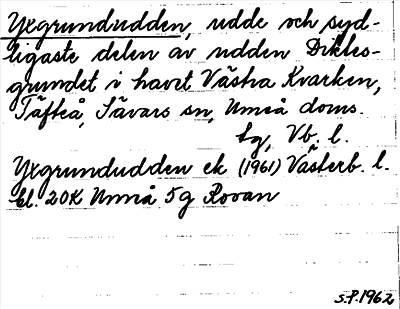 Yxgrundudden, udde och syd-
ligaste delen av udden Dikles-
grundet i havet Västra Kvarken,
Täfteå, Sävars sn, Umeå doms.
tg, Vb. l.
Yxgrundudden ek (1961) Västerb. l.
bl. 20K Umeå 5g Rovan
S.P. 1962